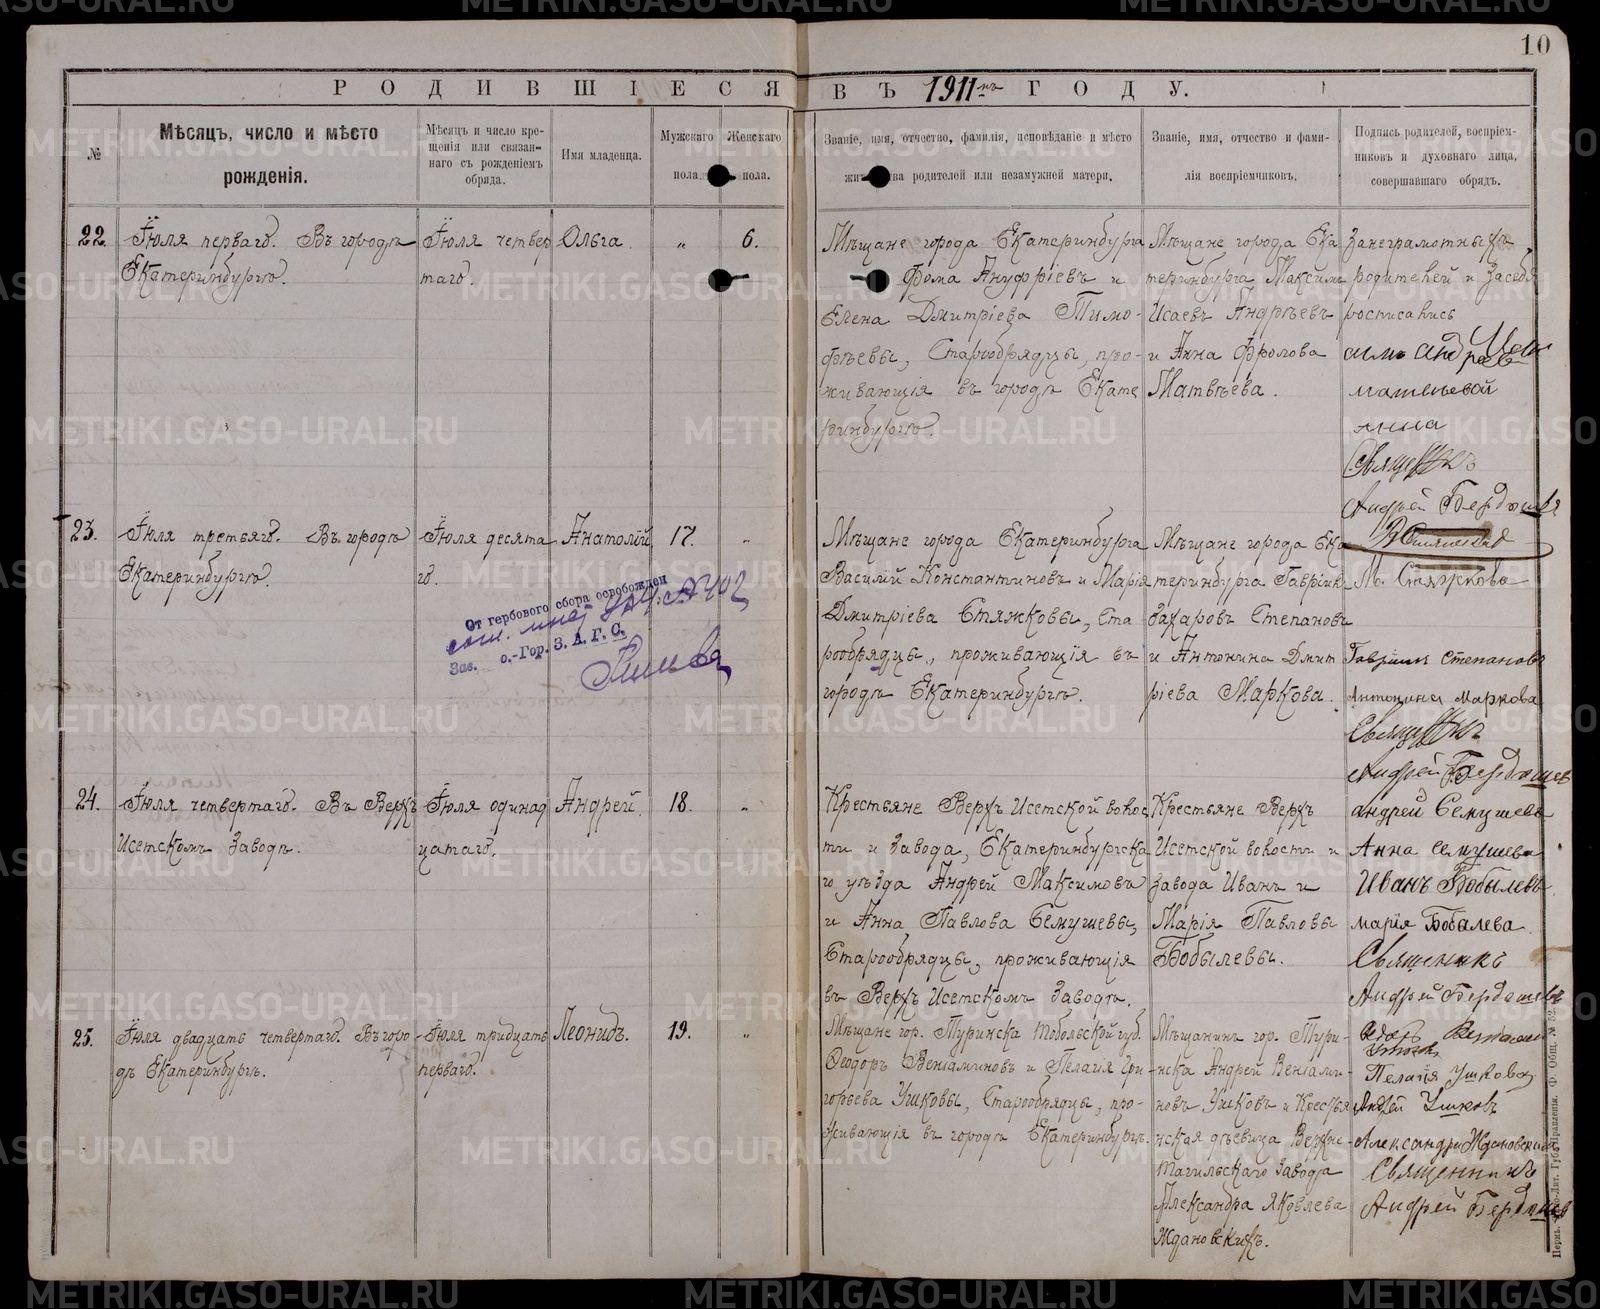 10
РОДИВШІЕСЯ ВЪ 1911мъ ГОДУ.
№
Мѣсяцъ, число и мѣсто
рожденія.
Мѣсяцъ и число кре-
щенія или связан-
наго съ рожденіемъ
обряда.
Имя младенца.
Мужскаго
пола.
Женскаго
пола.
Званіе, имя, отчество, фамилія, исповѣданіе и мѣсто
жит ва родителей или незамужней матери.
Званіе, имя, отчество и фами-
лія воспріемчиковъ.
Подпись родителей, воспріем-
никовъ и духовнаго лица,
совершавшаго обрядъ.
22.
Іюля перваго. Въ городѣ
Екатеринбургѣ.
Іюля четвер
таго.
Ольга.
„
6.
Мѣщане города Екатеринбурга
Фома Ануфріевъ и
Елена Дмитріева Тимо-
фѣевы, Старообрядцы, про-
живающія въ городѣ Екате
ринбургѣ.
Мѣщане города Ека
теринбурга Максимъ
Исаевъ Андрѣевъ
и Анна Фролова
Матвѣева.
занеграмотныхъ
родителей и засебя
росписались
матвеевой
анна
Священникъ
Андрей Бердышев
23.
Іюля третьяго. Въ городѣ
Екатеринбургѣ.
Іюля десята
го.
Анатолій
17.
„
Мѣщане города Екатеринбурга
Василій Константиновъ и Марія
Дмитріева Стяжковы, Ста
рообрядцы, проживающія въ
городѣ Екатеринбургѣ.
Мѣщане города Ека
теринбурга Гавріилъ
Захаровъ Степановъ
и Антонина Дмит
ріева Маркова.
М. Стяжкова
Гавріилъ Степановъ
Антонина Маркова
Священникъ
Андрей Бердышев
От гербового сбора освобожден
Зав. о.-Гор. З. А. Г. С.
24.
Іюля четвертаго. Въ Верхъ
Исетскомъ Заводѣ.
Іюля одинад
цатаго.
Андрей.
18.
„
Крестьяне Верхъ Исетской волос
ти и Завода, Екатеринбургска
го уѣзда Андрей Максимовъ
и Анна Павлова Семушевы,
Старообрядцы, проживающія
въ Верхъ Исетскомъ Заводѣ.
Крестьяне Верхъ
Исетской волости и
Завода Иванъ и
Марія Павловы
Бобылевы.
андрей Семушевъ
Анна семушева
Иванъ Бобылевъ
марія Бобалева
Священикъ
Андрей Бердышевъ
25.
Іюля двадцать четвертаго. Въ горо-
дѣ Екатеринбургѣ.
Іюля тридцать
перваго.
Леонидъ.
19.
„
Мѣщане гор. Туринска Тобольской губ.
Ѳеодоръ Веніаминовъ и Пелагія Гри-
горьева Ушковы, Старообрядцы, про-
живающія въ городѣ Екатеринбургѣ.
Мѣщанинъ гор. Тури-
нска Андрей Веніами-
новъ Ушковъ и Крестья
нская дѣвица Верхне-
тагильскаго Завода
Александра Яковлева
Ждановскихъ.
Ушковъ
Пелагія Ушкова
Андрей Ушковъ
Александра Ждановских
Священникъ
Андрей Бердышев
METRIKI.GASO-URAL.RU